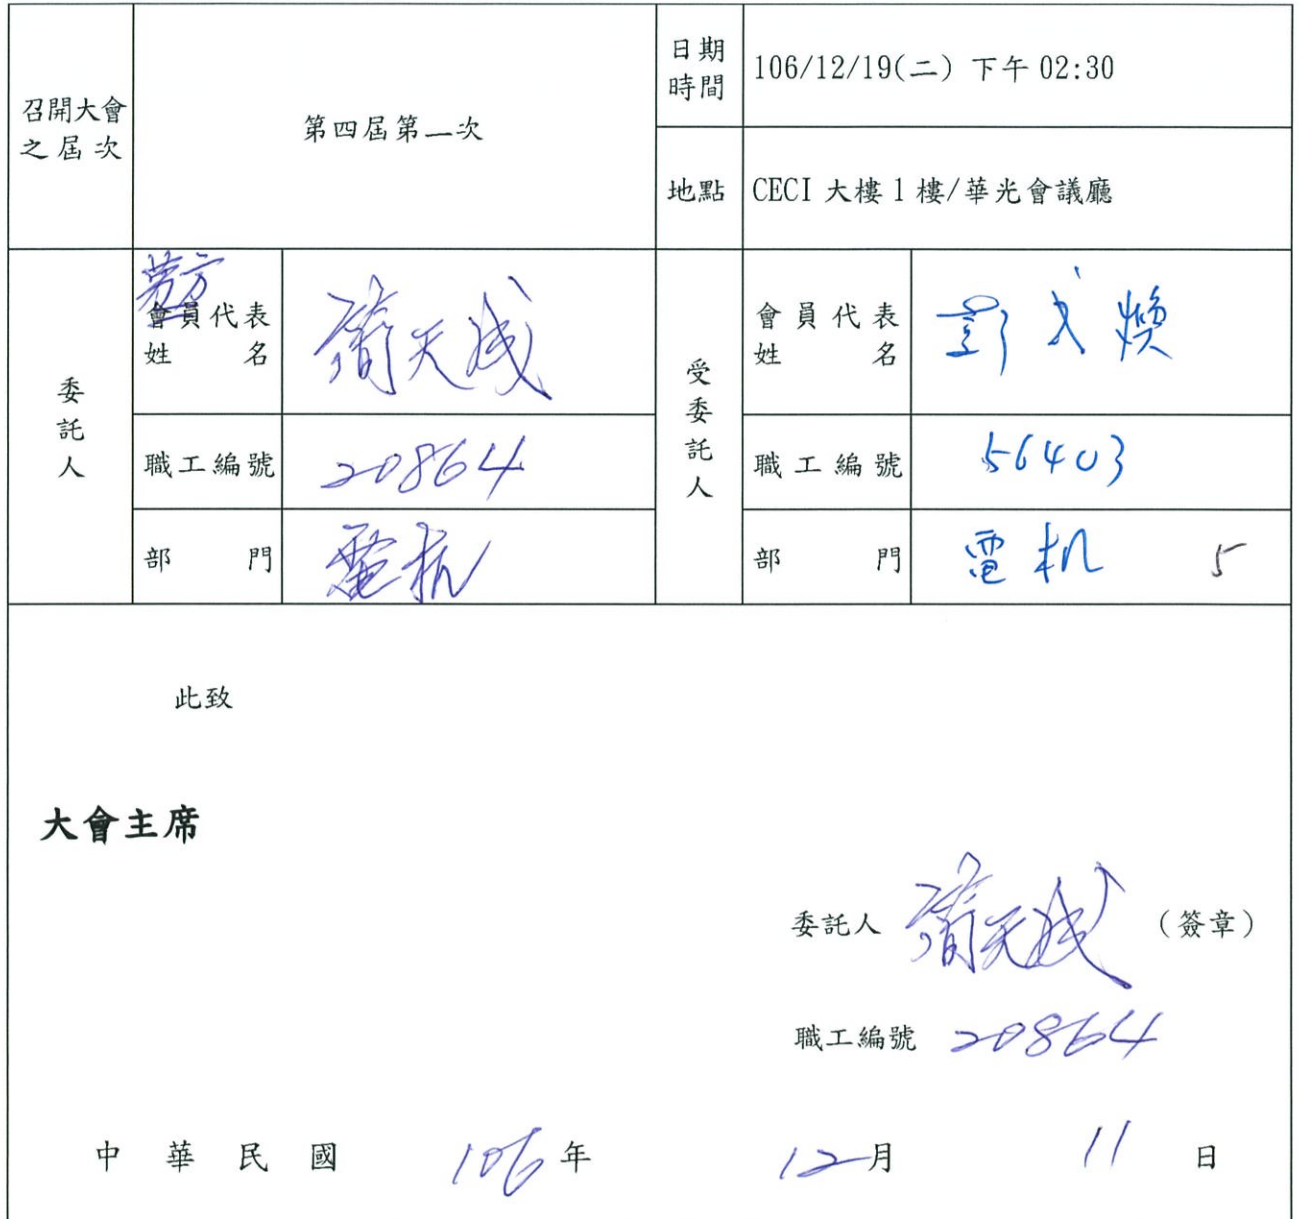 召開大會
之屆次
第四屆第一次
日期
時間
106/12/19(二) 下午 02:30
地點
CECI 大樓 1 樓/華光會議廳
委託人
勞方
會員代表
姓名
天成
職工編號
20864
部門
電机
受委託人
會員代表
姓名
彭 煥
職工編號
56403
部門
電机 5
此致
大會主席
委託人 天成 (簽章)
職工編號 20864
中華民國 106年 12月 11日